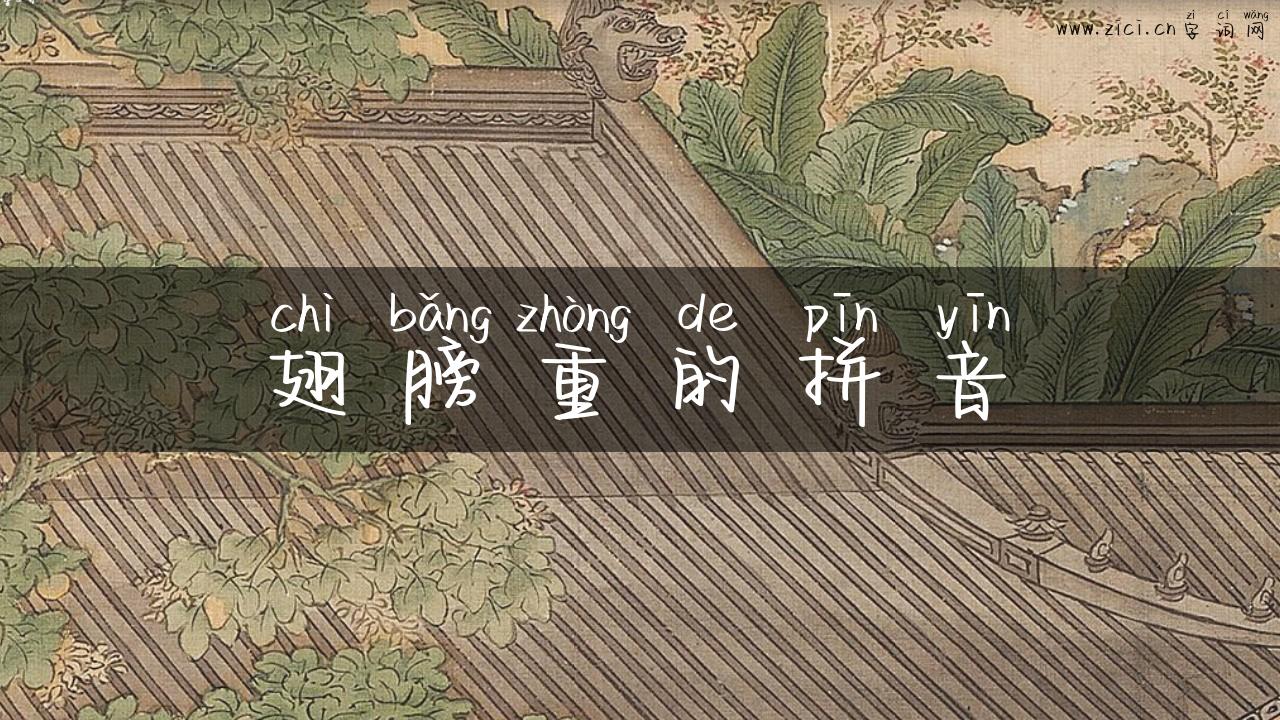 zì cí wǎng
www.zici.cn 字词网
chì bǎng zhòng de pīn yīn
翅膀重的拼音